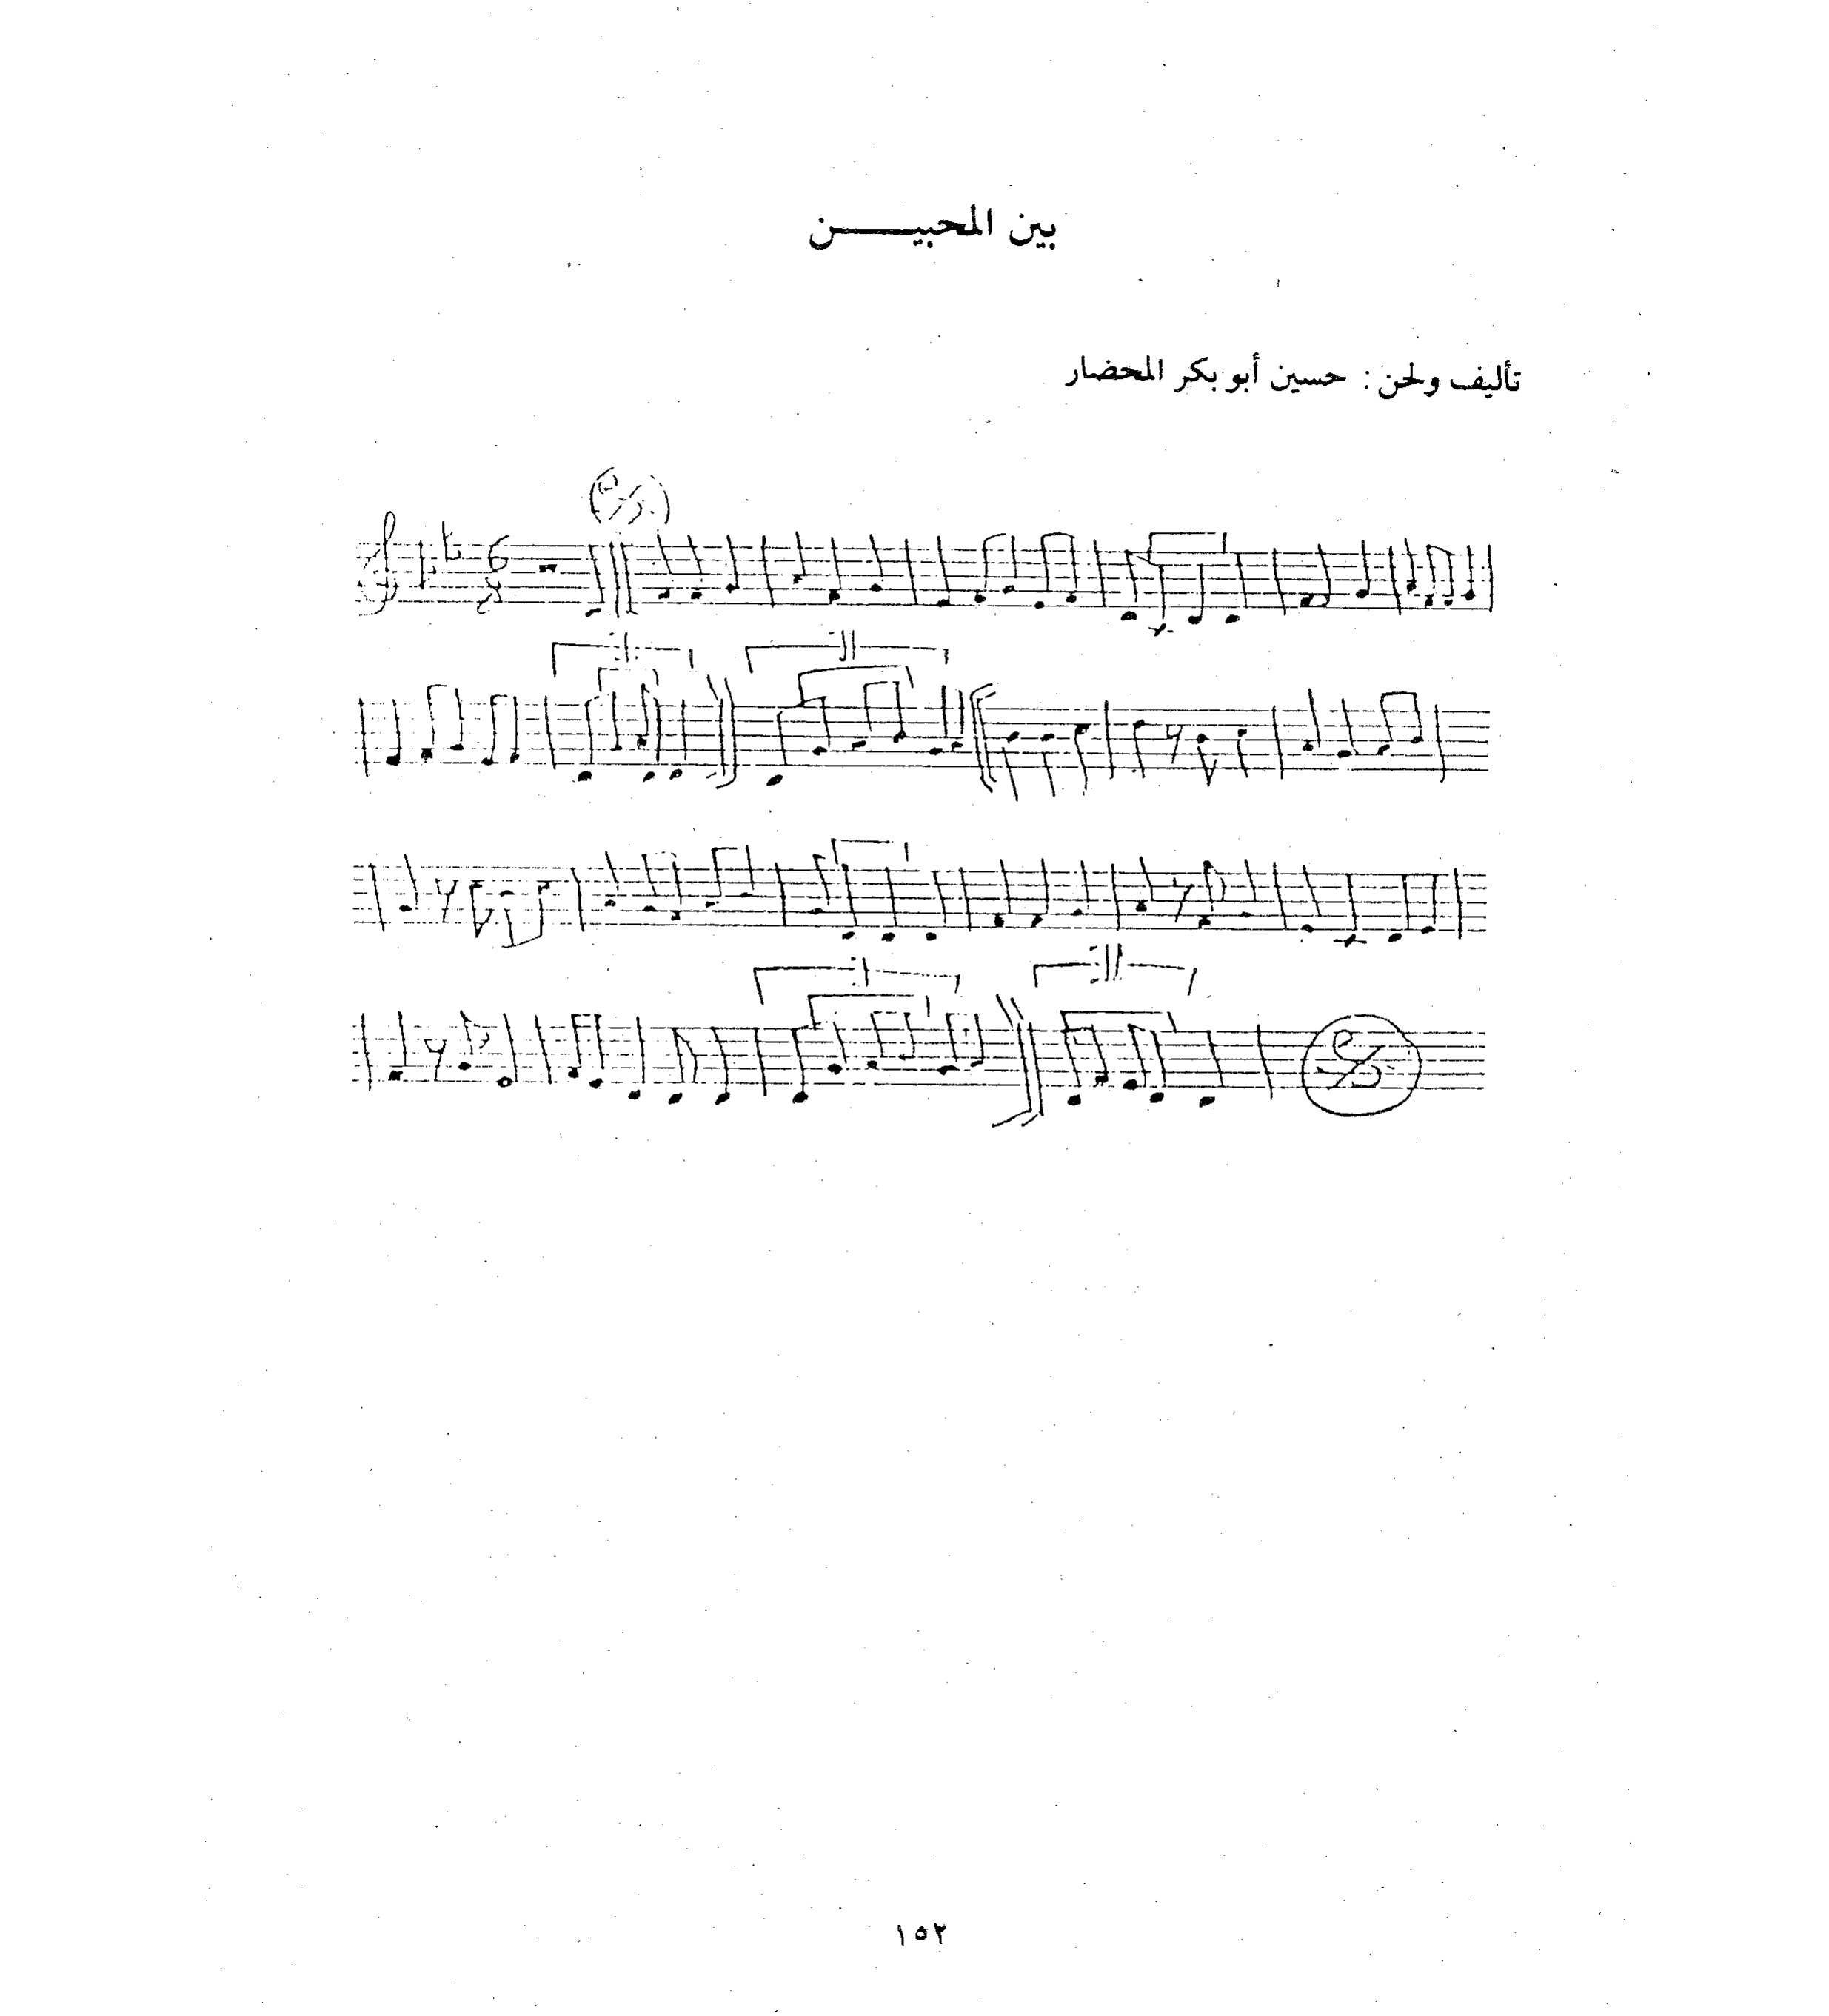 بين المحبيـــــن
تأليف ولحن : حسين أبو بكر المحضار
6
8
١٥٢